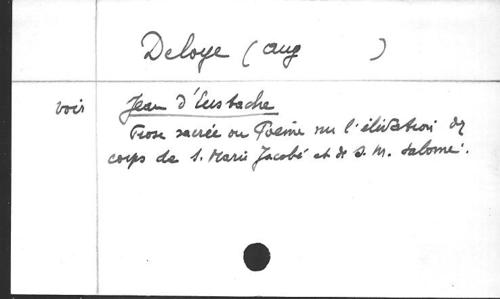 Deloye (Aug )
voir Jean d'Eusbache
Prose sacrée ou Poème sur l'élévation des
corps de S. Marie Jacobé et de S. M. Salomé.